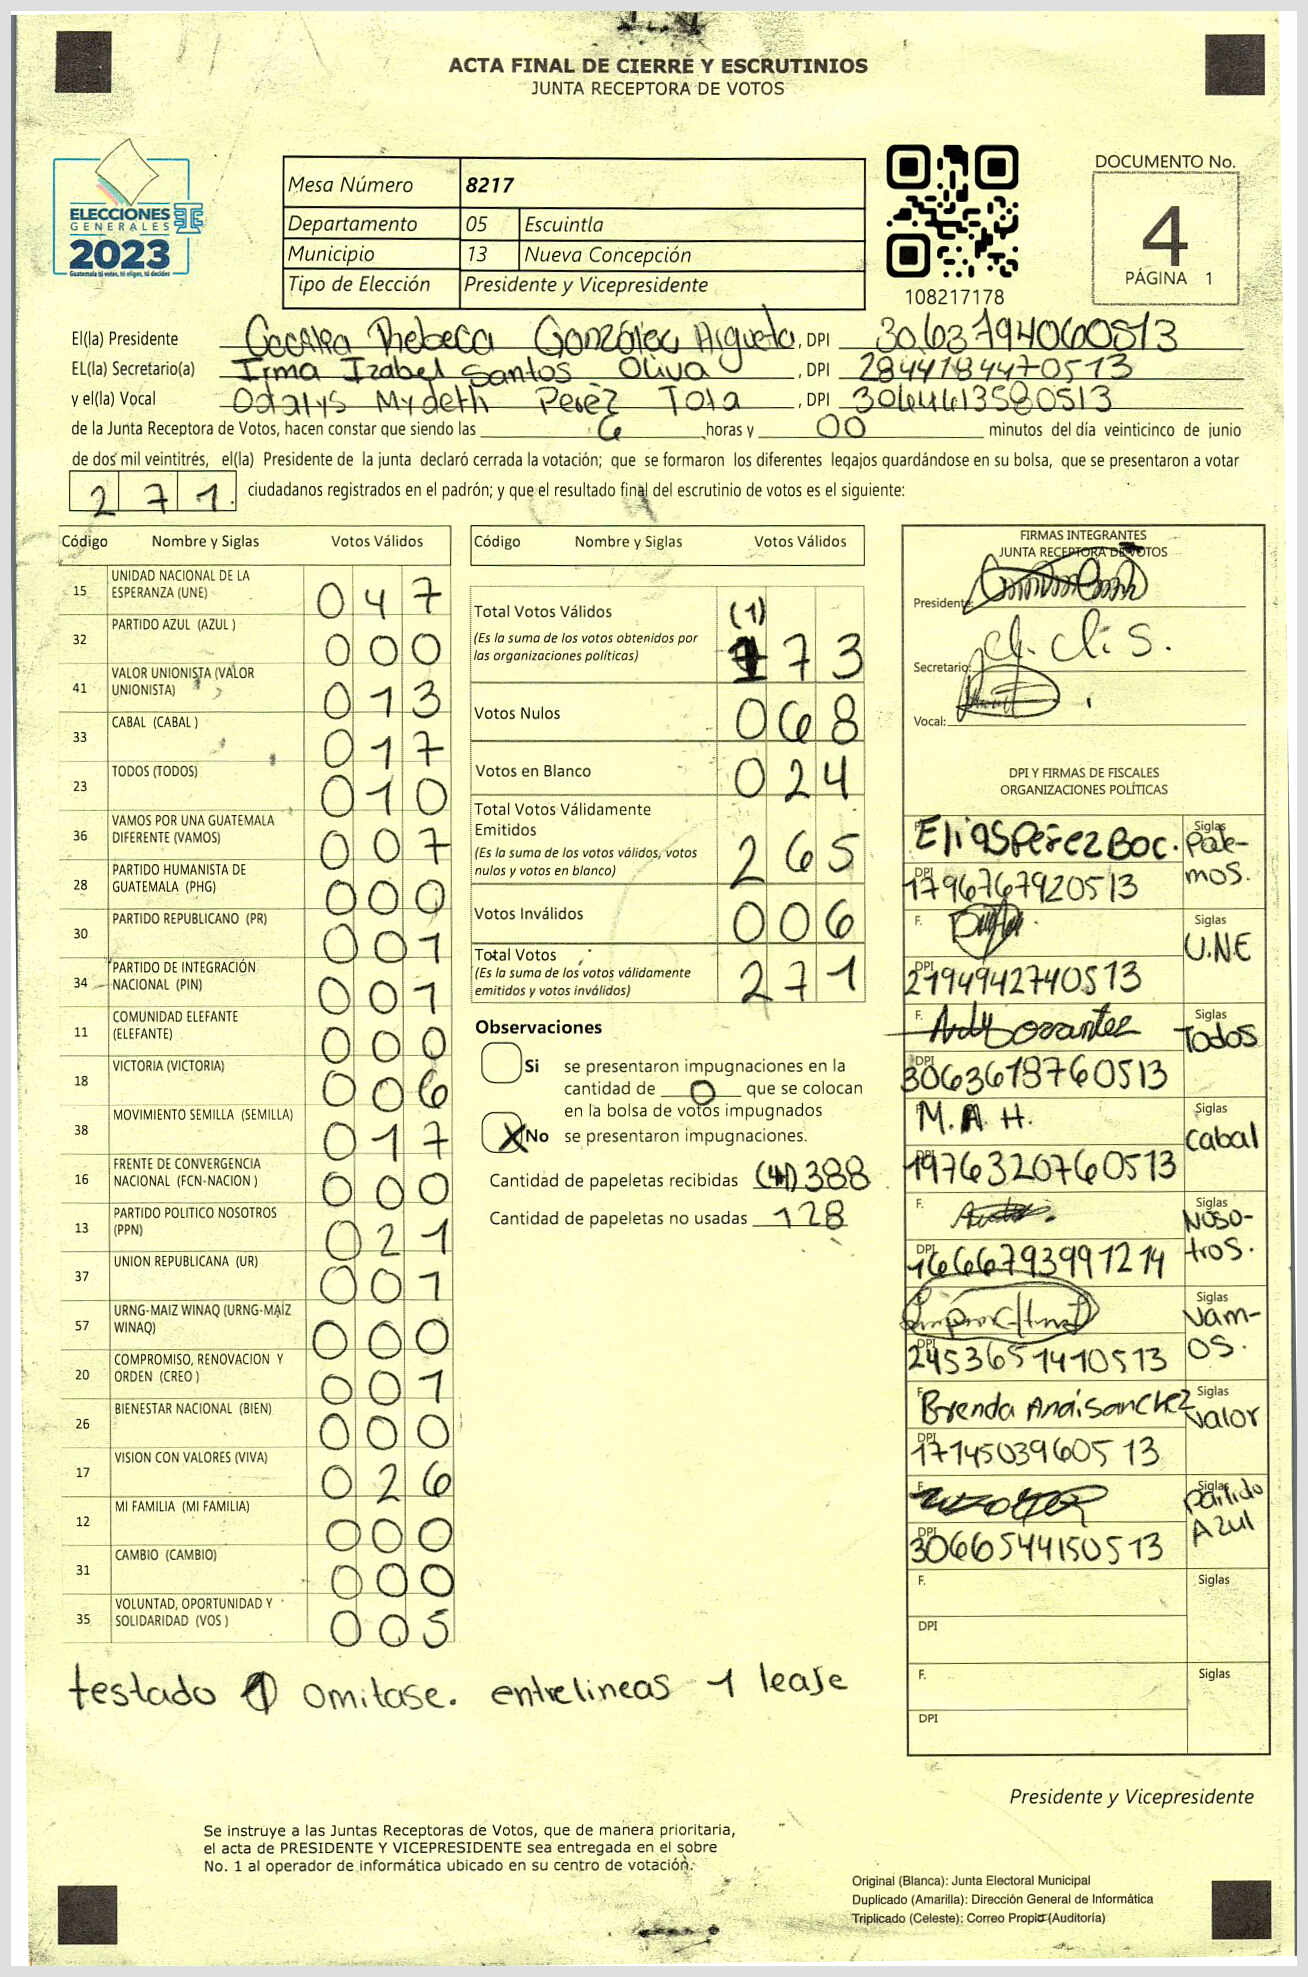 ACTA FINAL DE CIERRE Y ESCRUTINIOS
JUNTA RECEPTORA DE VOTOS
ELECCIONES
GENERALES
2023
Guatemala tú votas, tú eliges, tú decides
Mesa Número 8217
Departamento 05 Escuintla
Municipio 13 Nueva Concepción
Tipo de Elección Presidente y Vicepresidente
108217178
DOCUMENTO No.
4
PÁGINA 1
El(la) Presidente Rhebeca González Argueta, DPI 3063794060513
EL(la) Secretario(a) Irma Izabel Santos Oliva, DPI 2844184470513
y el(la) Vocal Odalys Mydeth Perez Tota, DPI 3064613580513
de la Junta Receptora de Votos, hacen constar que siendo las 6 horas y 00 minutos del día veinticinco de junio
de dos mil veintitrés, el(la) Presidente de la junta declaró cerrada la votación; que se formaron los diferentes legajos guardándose en su bolsa, que se presentaron a votar
271 ciudadanos registrados en el padrón; y que el resultado final del escrutinio de votos es el siguiente:
Código Nombre y Siglas Votos Válidos
15 UNIDAD NACIONAL DE LA ESPERANZA (UNE) 047
32 PARTIDO AZUL (AZUL ) 000
41 VALOR UNIONISTA (VALOR UNIONISTA) 013
33 CABAL (CABAL ) 017
23 TODOS (TODOS) 010
36 VAMOS POR UNA GUATEMALA DIFERENTE (VAMOS) 007
28 PARTIDO HUMANISTA DE GUATEMALA (PHG) 000
30 PARTIDO REPUBLICANO (PR) 001
34 PARTIDO DE INTEGRACIÓN NACIONAL (PIN) 001
11 COMUNIDAD ELEFANTE (ELEFANTE) 000
18 VICTORIA (VICTORIA) 006
38 MOVIMIENTO SEMILLA (SEMILLA) 017
16 FRENTE DE CONVERGENCIA NACIONAL (FCN-NACION ) 000
13 PARTIDO POLITICO NOSOTROS (PPN) 021
37 UNION REPUBLICANA (UR) 001
57 URNG-MAIZ WINAQ (URNG-MAÍZ WINAQ) 000
20 COMPROMISO, RENOVACION Y ORDEN (CREO ) 001
26 BIENESTAR NACIONAL (BIEN) 000
17 VISION CON VALORES (VIVA) 026
12 MI FAMILIA (MI FAMILIA) 000
31 CAMBIO (CAMBIO) 000
35 VOLUNTAD, OPORTUNIDAD Y SOLIDARIDAD (VOS ) 005
Código Nombre y Siglas Votos Válidos
Total Votos Válidos (1)
(Es la suma de los votos obtenidos por
las organizaciones políticas) 173
Votos Nulos 068
Votos en Blanco 024
Total Votos Válidamente
Emitidos
(Es la suma de los votos válidos, votos
nulos y votos en blanco) 265
Votos Inválidos 006
Total Votos
(Es la suma de los votos válidamente
emitidos y votos inválidos) 271
Observaciones
Si se presentaron impugnaciones en la
cantidad de 0 que se colocan
en la bolsa de votos impugnados
X No se presentaron impugnaciones.
Cantidad de papeletas recibidas 388
Cantidad de papeletas no usadas 128
FIRMAS INTEGRANTES
JUNTA RECEPTORA DE VOTOS
Presidente:
Secretario:
Vocal:
DPI Y FIRMAS DE FISCALES
ORGANIZACIONES POLÍTICAS
F. Elias Pérez Boc. Siglas
DPI 1796767920513
F. Siglas U.N.E
DPI 2194942740513
F. Siglas Todos
DPI 3063618760513
F. M.A.H. Siglas Cabal
DPI 1976320760513
F. Siglas Nosotros.
DPI 1666793991214
F. Siglas Vamos.
DPI 2453651410513
F. Brenda Anaí Sanchez Siglas Valor
DPI 1714503960513
F. Siglas Partido Azul
DPI 3066544150513
F. Siglas
DPI
F. Siglas
DPI
testado 1 omitase. entrelineas 1 lease
Presidente y Vicepresidente
Se instruye a las Juntas Receptoras de Votos, que de manera prioritaria,
el acta de PRESIDENTE Y VICEPRESIDENTE sea entregada en el sobre
No. 1 al operador de informática ubicado en su centro de votación.
Original (Blanca): Junta Electoral Municipal
Duplicado (Amarilla): Dirección General de Informática
Triplicado (Celeste): Correo Propio (Auditoría)